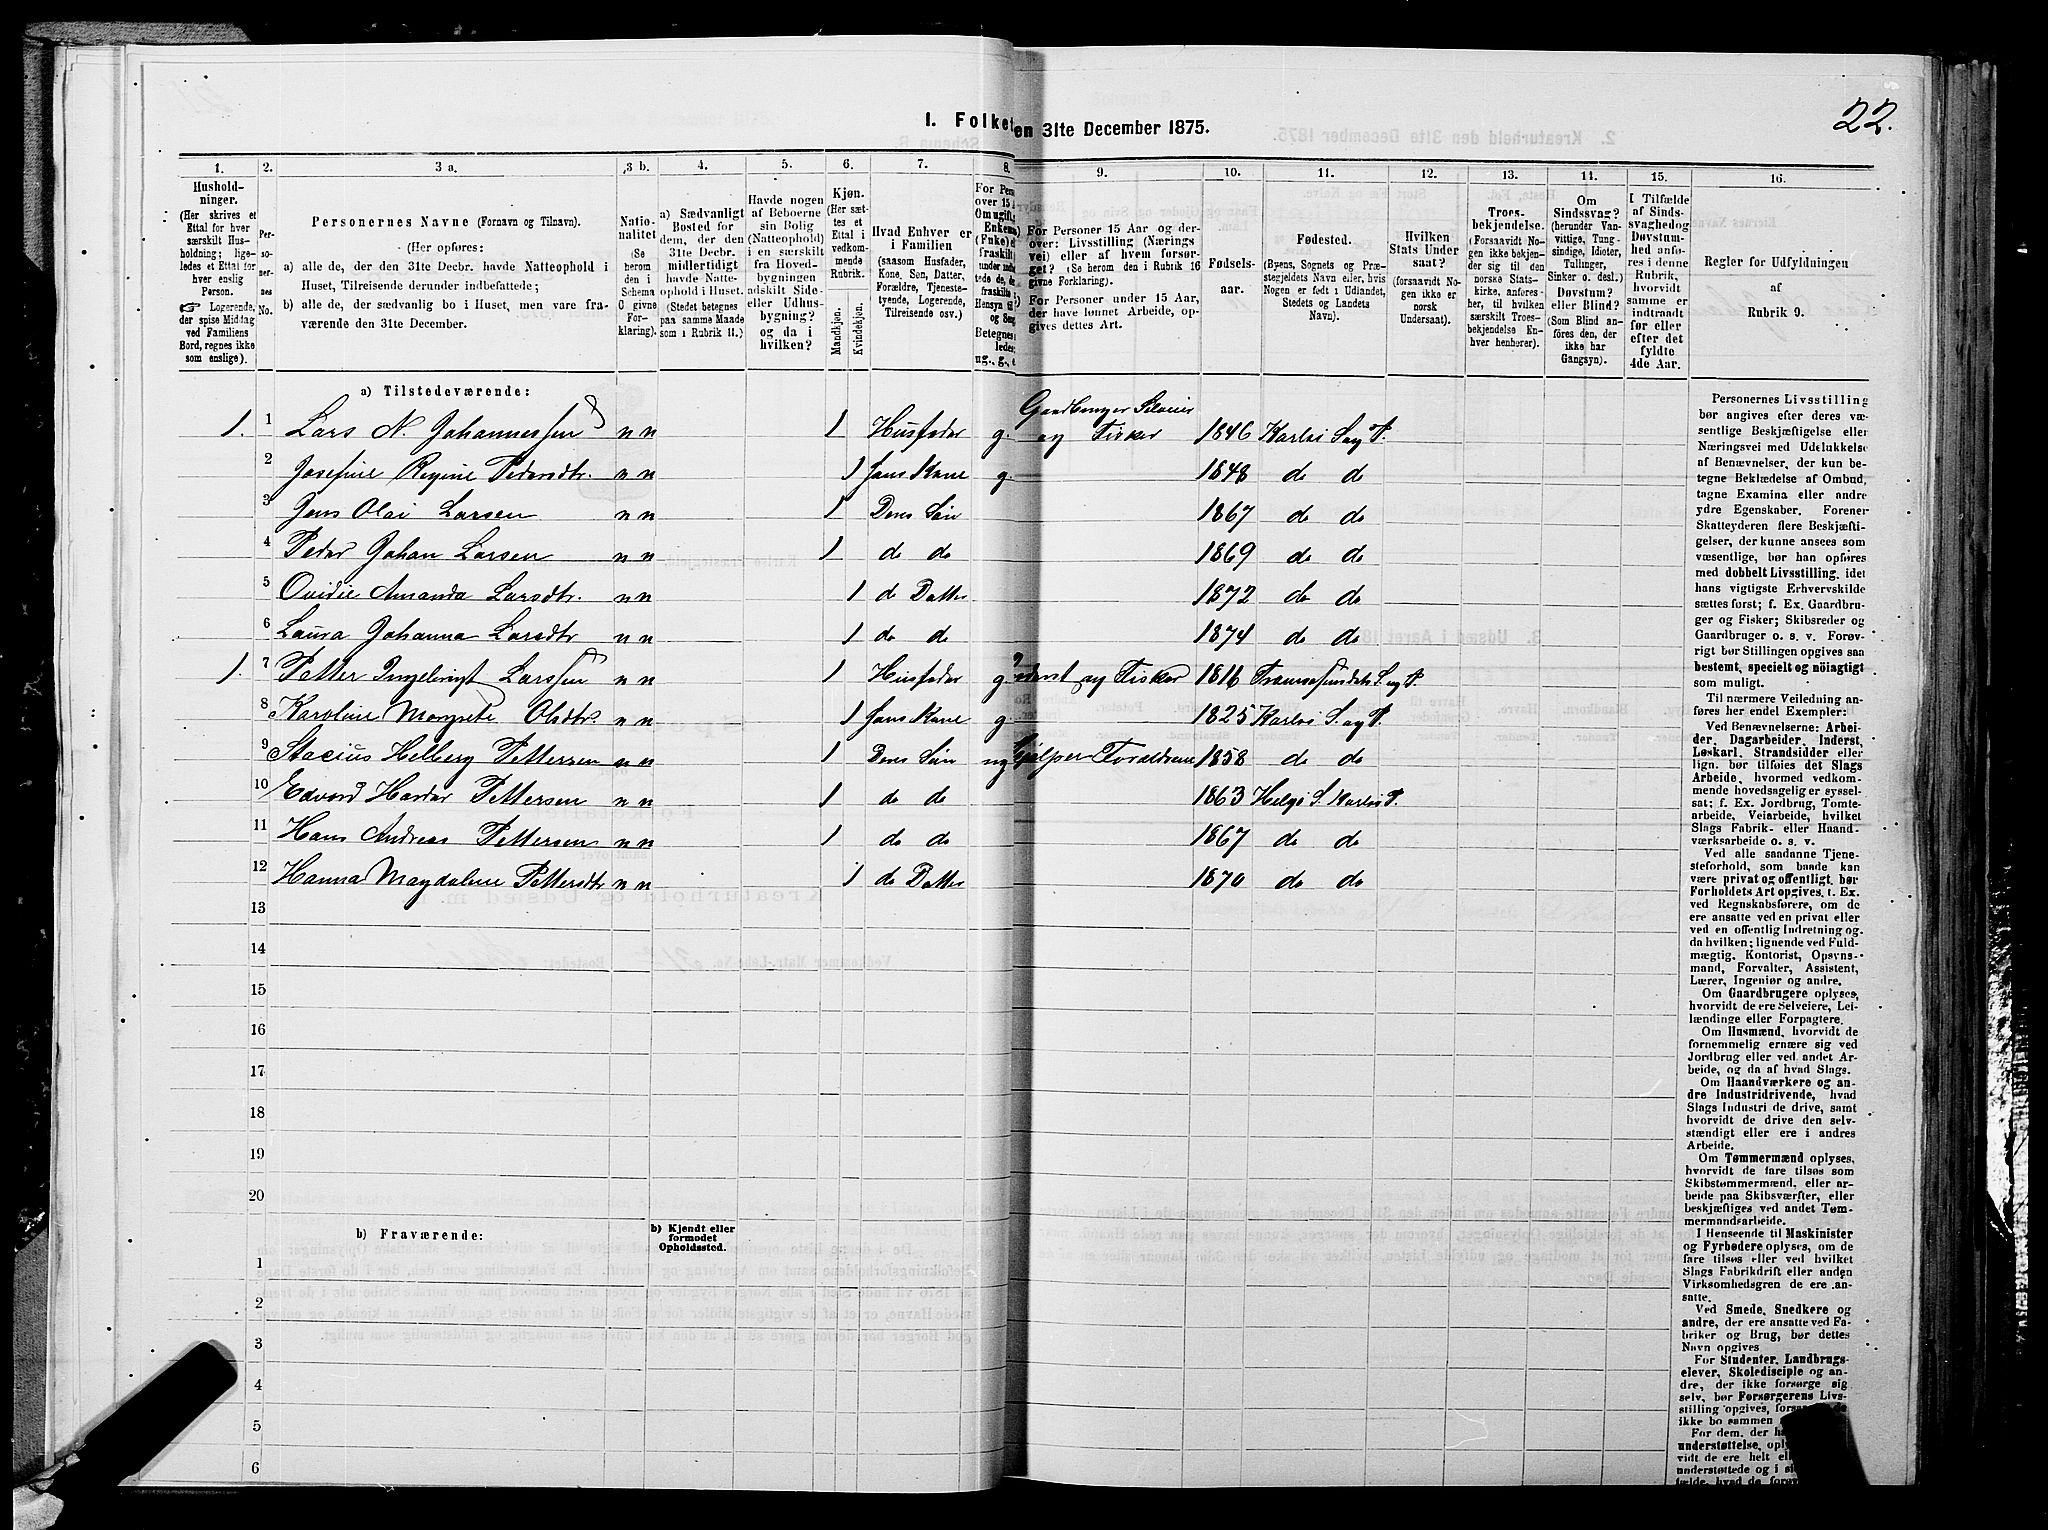 22.
I. Folket
en 31te December 1875.
1. 2. 3 a. 3 b. 4. 5. 6. 7. 8. 9. 10. 11. 12. 13. 11. 15. 16.
Hushold-
ninger.
(Her skrives et
Ettal for hver
særskilt Hus-
holdning; lige-
ledes et Ettal for
hver enslig
Person.
Logerende,
der spise Middag
ved Familiens
Bord, regnes ikke
som enslige).
Per-
so-
ner-
nes
No.
Personernes Navne (Fornavn og Tilnavn).
(Her opføres:
a) alle de, der den 31te Decbr. havde Natteophold i
Huset, Tilreisende derunder indbefattede;
b) alle de, der sædvanlig bo i Huset, men vare fra-
værende den 31te December.
Natio-
nalitet
(Se
herom
den i
Schema
O givne
For-
klaring).
a) Sædvanligt
Bosted for
dem, der den
31te Decbr.
midlertidigt
havde Natte-
ophold i Huset.
(Stedet betegnes
paa samme Maade
som i Rubrik 11.)
Havde nogen
af Beboerne
sin Bolig
(Natteophold)
i en særskilt
fra Hoved-
bygningen
adskilt Side-
eller Udhus-
bygning?
og da i
hvilken?
Kjøn.
(Her sæt-
tes et
Ettal i
vedkom-
mende
Rubrik.
Mandkjøn.
Kvindekjøn.
Hvad Enhver er
i Familien
(saasom Husfader,
Kone, Søn, Datter,
Forældre, Tjeneste-
tyende, Logerende,
Tilreisende osv.)
For Pers
over 15 A
Om ugift,
Enkema
(Fraskilt
Hensyn ti
og Sen
Betegnes
ledes
ug., g., e
For Personer 15 Aar og der-
over: Livsstilling (Nærings
vei) eller af hvem forsør-
get? (Se herom den i Rubrik 16
givne Forklaring).
For Personer under 15 Aar,
der have lønnet Arbeide, op-
gives dettes Art.
Fødsels-
aar.
Fødested.
(Byens, Sognets og Præ-
stegjeldets Navn eller, hvis
Nogen er født i Udlandet,
Stedets og Landets
Navn).
Hvilken
Stats Under
saat?
(forsaavidt No-
gen ikke er
norsk
Undersaat).
Troes-
bekjendelse.
(Forsaavidt No-
gen ikke bekjen-
der sig til den
norske Stats-
kirke, anføres
her, til hvilken
særskilt Troes-
bekjendelse En-
hver henhører).
Om
Sindssvag?
(herunder Van-
vittige, Tung-
sindige, Idioter,
Tullinger,
Sinker o. desl.)
Døvstum?
eller Blind?
(Som Blind an-
føres den, der
ikke har
Gangsyn).
I Tilfælde
af Sinds-
svaghed og
Døvstum-
hed anfø-
res i denne
Rubrik,
hvorvidt
samme er
indtraadt
før eller
efter det
fyldte
4de Aar.
Regler for Udfyldningen
af
Rubrik 9.
a) Tilstedeværende:
Gaardbruger Selveier
1. 1 Lars N. Johannessen n n 1 Husfader g. og Fisker 1846 Karlsö S. og P.
2 Josefine Regine Pedersdtr. n n 1 Hans Kone g. 1848 do do
3 Jens Olai Larsen n n 1 Deres Søn 1867 do do
4 Peder Johan Larsen n n 1 do do 1869 do do
5 Ovidie Amanda Larsdtr. n n 1 do Datter 1872 do do
6 Laura Johanna Larsdtr n n 1 do do 1874 do do
1. 7 Petter Ingebrigt Larssen n n 1 Husfader g. Inderst og Fisker 1816 Tromsesundets S. og P.
8 Karoline Margrete Olsdtr. n n 1 Hans Kone g. 1825 Karlsö S. og P.
9 Stacius Helberg Pettersen n n 1 Deres Søn ug Hjælper Forældrene 1858 do do
10 Edvard Hardar Pettersen n n 1 do do 1863 Helgö S. Karlsö P.
11 Hans Andreas Pettersen n n 1 do do 1867 do do
12 Hanna Magdalene Pettersdtr n n 1 do Datter 1870 do do
13
14
15
16
17
18
19
20
b) Fraværende:
b) Kjendt eller
formodet
Opholdssted.
1
2
3
4
5
6
Personernes Livsstilling
bør angives efter deres væ-
sentlige Beskjæftigelse eller
Næringsvei med Udelukkelse
af Benævnelser, der kun be-
tegne Beklædelse af Ombud,
tagne Examina eller andre
ydre Egenskaber. Forener
Skatteyderen flere Beskjæfti-
gelser, der kunne ansees som
væsentlige, bør han opføres
med dobbelt Livsstilling, idet
hans vigtigste Erhvervskilde
sættes først; f. Ex. Gaardbru-
ger og Fisker; Skibsreder og
Gaardbruger o. s. v. Forøv-
rigt bør Stillingen opgives saa
bestemt, specielt og nöiagtigt
som muligt.
Til nærmere Veiledning an-
føres her endel Exempler:
Ved Benævnelserne: Arbei-
der, Dagarbeider, Inderst,
Løskarl, Strandsidder eller
lign. bør tilføies det Slags
Arbeide, hvormed vedkom-
mende hovedsagelig er syssel-
sat; f. Ex. Jordbrug, Tomte-
arbeide, Veiarbeide, hvilket
Slags Fabrik- eller Haand-
værksarbeide o. s. v.
Ved alle saadanne Tjene-
steforhold, som baade kan
være privat og offentligt, bør
Forholdets Art opgives, f. Ex.
ved Regnskabsførere, om de
ere ansatte ved en privat eller
ved en offentlig Indretning og
da hvilken; lignende ved Fuld-
mægtig, Kontorist, Opsyns-
mand, Forvalter, Assistent,
Lærer, Ingeniør og andre.
Om Gaardbrugere oplyses,
hvorvidt de ere Selveiere, Lei-
lændinge eller Forpagtere.
Om Husmænd, hvorvidt de
fornemmelig ernære sig ved
Jordbrug eller ved andet Ar-
beide, og da af hvad Slags.
Om Haandværkere og an-
dre Industridrivende, hvad
Slags Industri de drive, samt
hvorvidt de drive den selv-
stændigt eller ere i andres
Arbeide.
Om Tømmermænd oplyses,
hvorvidt de fare tilsøs som
Skibstømmermænd, eller ar-
beide paa Skibsværfter, eller
beskjæftiges ved andet Tøm-
mermandsarbeide.
I Henseende til Maskinister
og Fyrbødere oplyses, om de
fare tilsøs eller ved hvilket
Slags Fabrikdrift eller anden
Virksomhedsgren de ere an-
satte.
Ved Smede, Snedkere og
andre, der ere ansatte ved Fa-
briker og Brug, bør dettes
Navn opgives.
For Studenter, Landbrugs-
elever, Skoledisciple og an-
dre, der ikke forsørge sig
selv, bør Forsørgerens Livs-
stilling opgives, forsaa
ikke bo sammen
For dem, der h
understøttelse, opl
vidt de ere helt el
understøttede og i s
fælde, hvad de forø